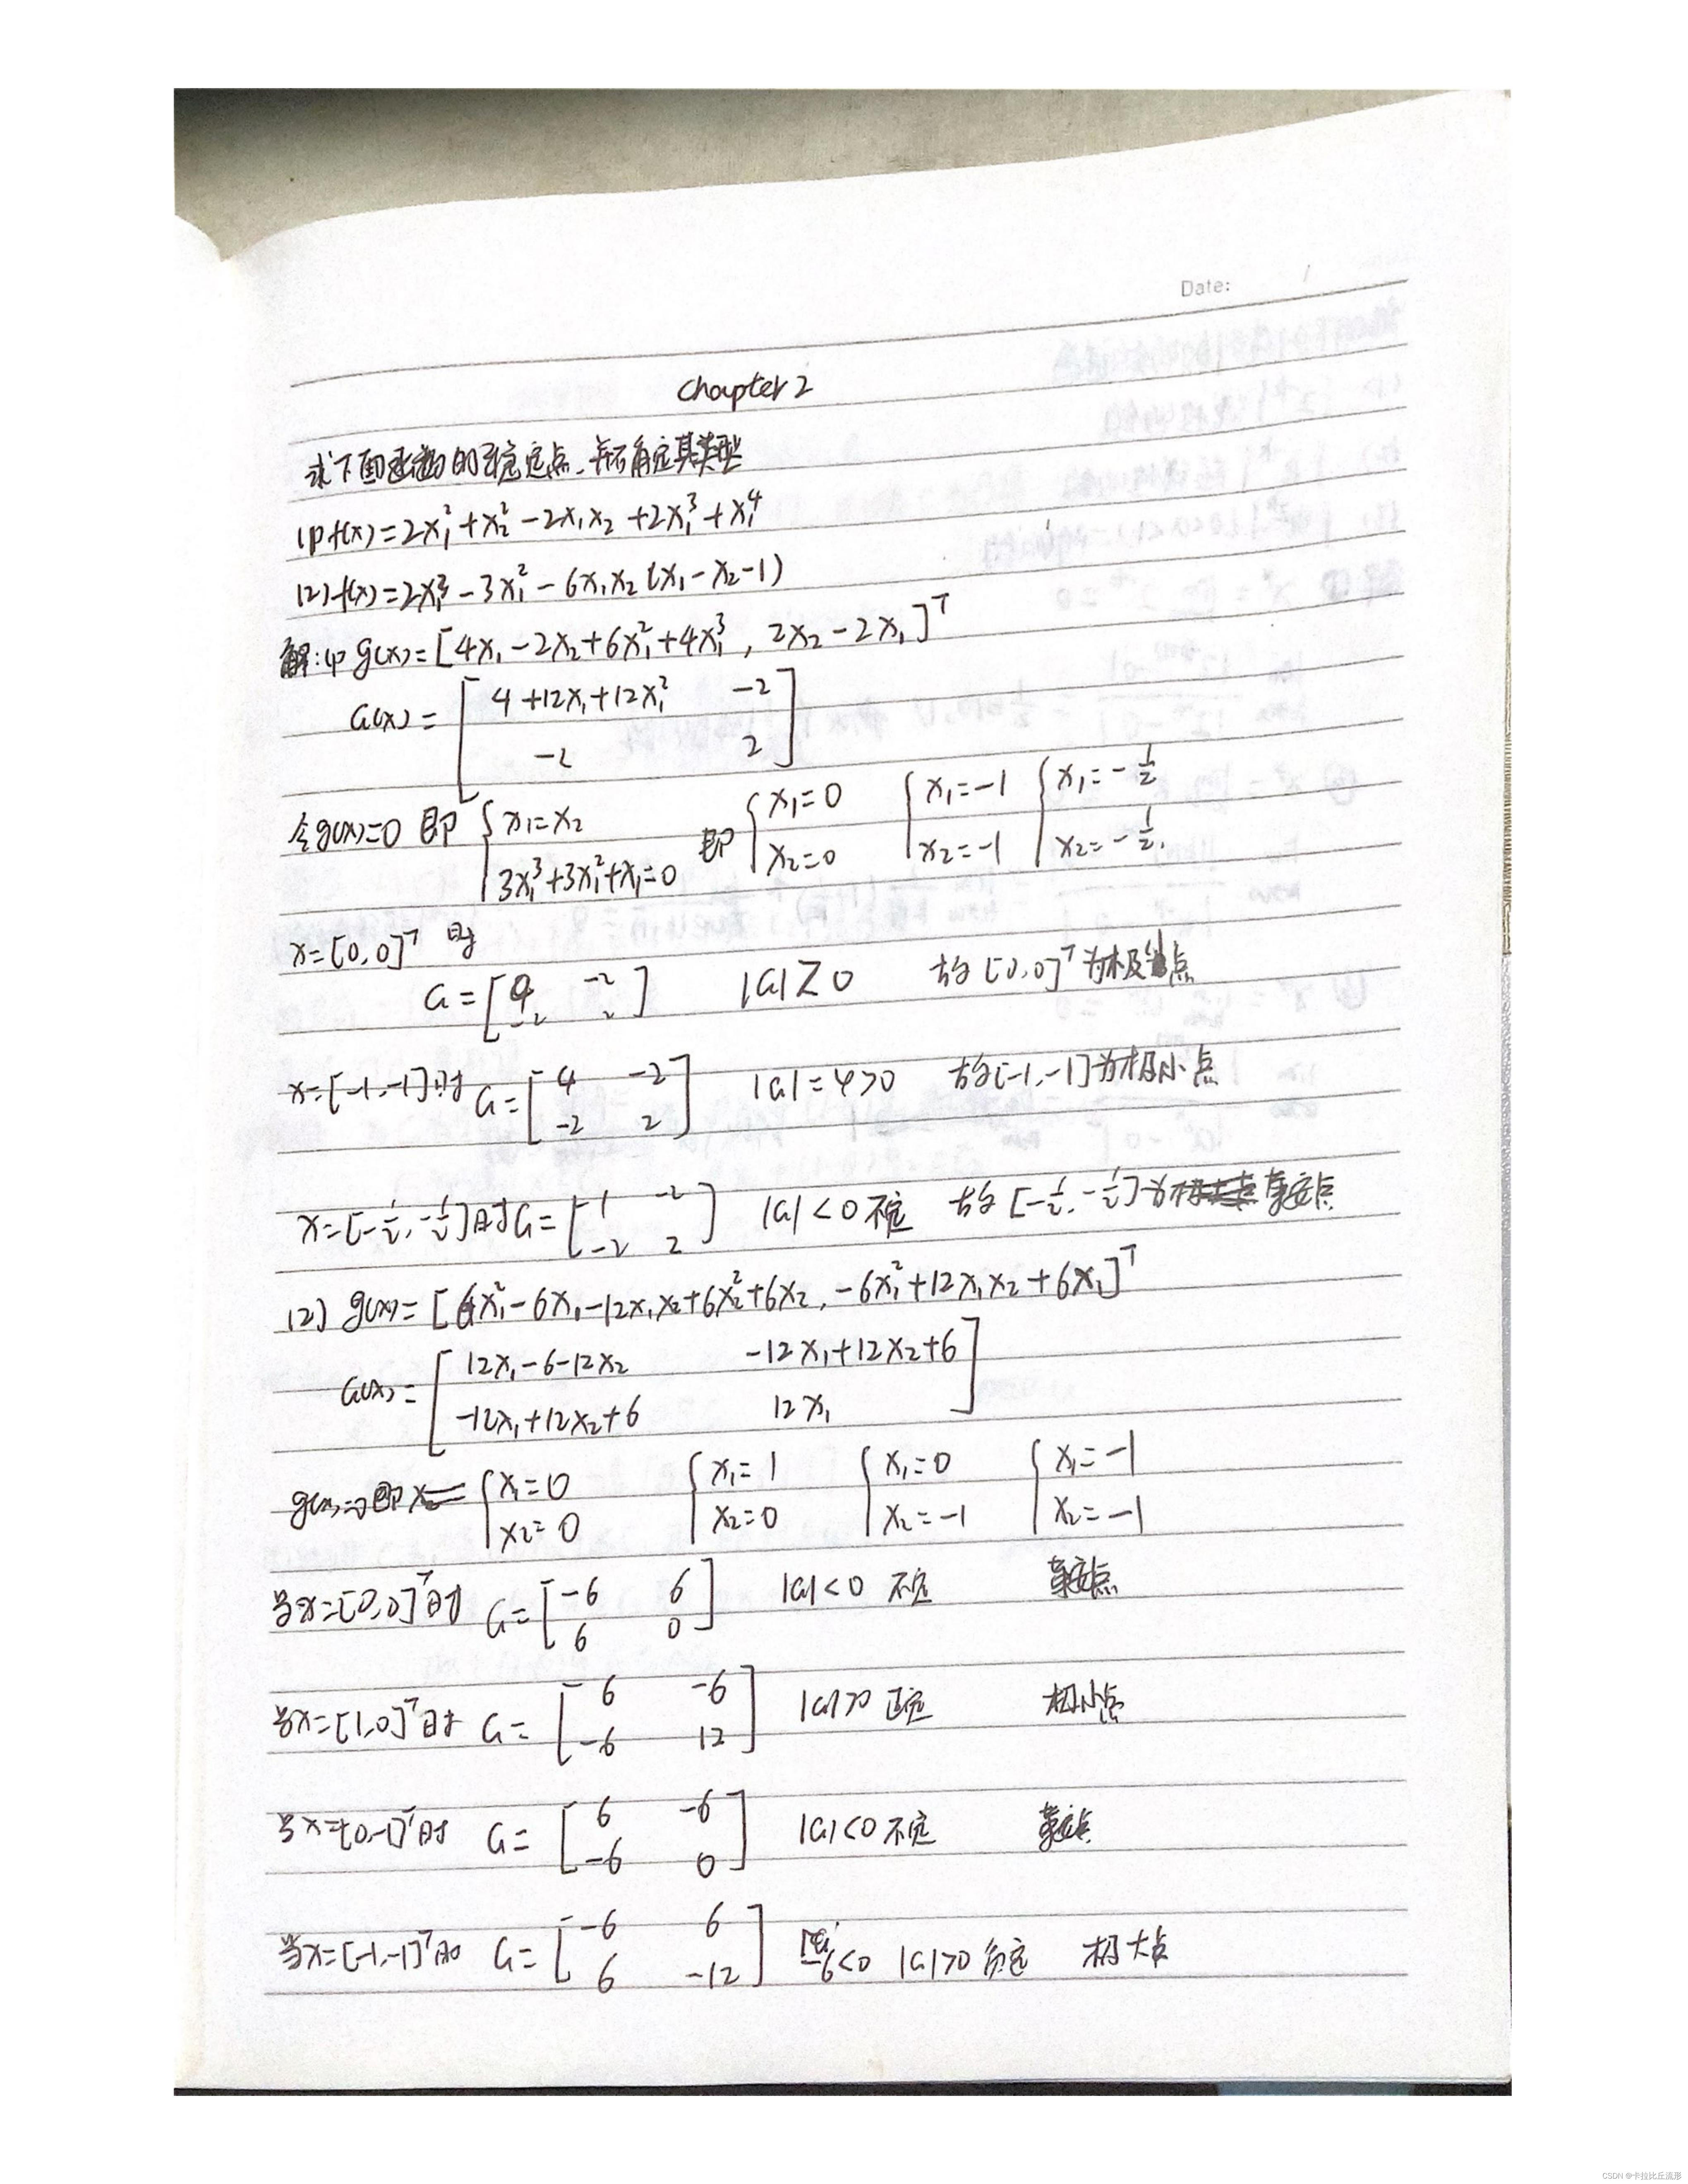 Date: 1
Chapter 2
求下面函数的稳定点,并确定其类型
(1) f(x)=2x₁²+x₂²-2x₁x₂+2x₁³+x₁⁴
(2) f(x)=2x₁³-3x₁²-6x₁x₂(x₁-x₂-1)
解:(1) g(x)=[4x₁-2x₂+6x₁²+4x₁³, 2x₂-2x₁]ᵀ
G(x)=[4+12x₁+12x₁² -2
-2 2]
令g(x)=0 即 {x₁=x₂ 即 {x₁=0 {x₁=-1 {x₁=-1/2
3x₁³+3x₁²+x₁=0 x₂=0 x₂=-1 x₂=-1/2.
x=[0,0]ᵀ 时
G=[4 -2 |G|>0 故[0,0]ᵀ为极小点
-2 2]
x=[-1,-1]时 G=[4 -2 |G|=4>0 故[-1,-1]为极小点
-2 2]
x=[-1/2,-1/2]时G=[1 -2 |G|<0 不定 故[-1/2,-1/2]为鞍点
-2 2]
(2) g(x)=[6x₁²-6x₁-12x₁x₂+6x₂²+6x₂, -6x₁²+12x₁x₂+6x₁]ᵀ
G(x)=[12x₁-6-12x₂ -12x₁+12x₂+6
-12x₁+12x₂+6 12x₁]
g(x)=0即 {x₁=0 {x₁=1 {x₁=0 {x₁=-1
x₂=0 x₂=0 x₂=-1 x₂=-1
当x=[0,0]ᵀ时 G=[-6 6 |G|<0 不定 鞍点
6 0]
当x=[1,0]ᵀ时 G=[6 -6 |G|>0 正定 极小点
-6 12]
当x=[0,-1]ᵀ时 G=[6 -6 |G|<0 不定 鞍点
-6 0]
当x=[-1,-1]ᵀ时 G=[-6 6 -6<0 |G|>0 负定 极大点
6 -12]
CSDN @卡拉比丘流形